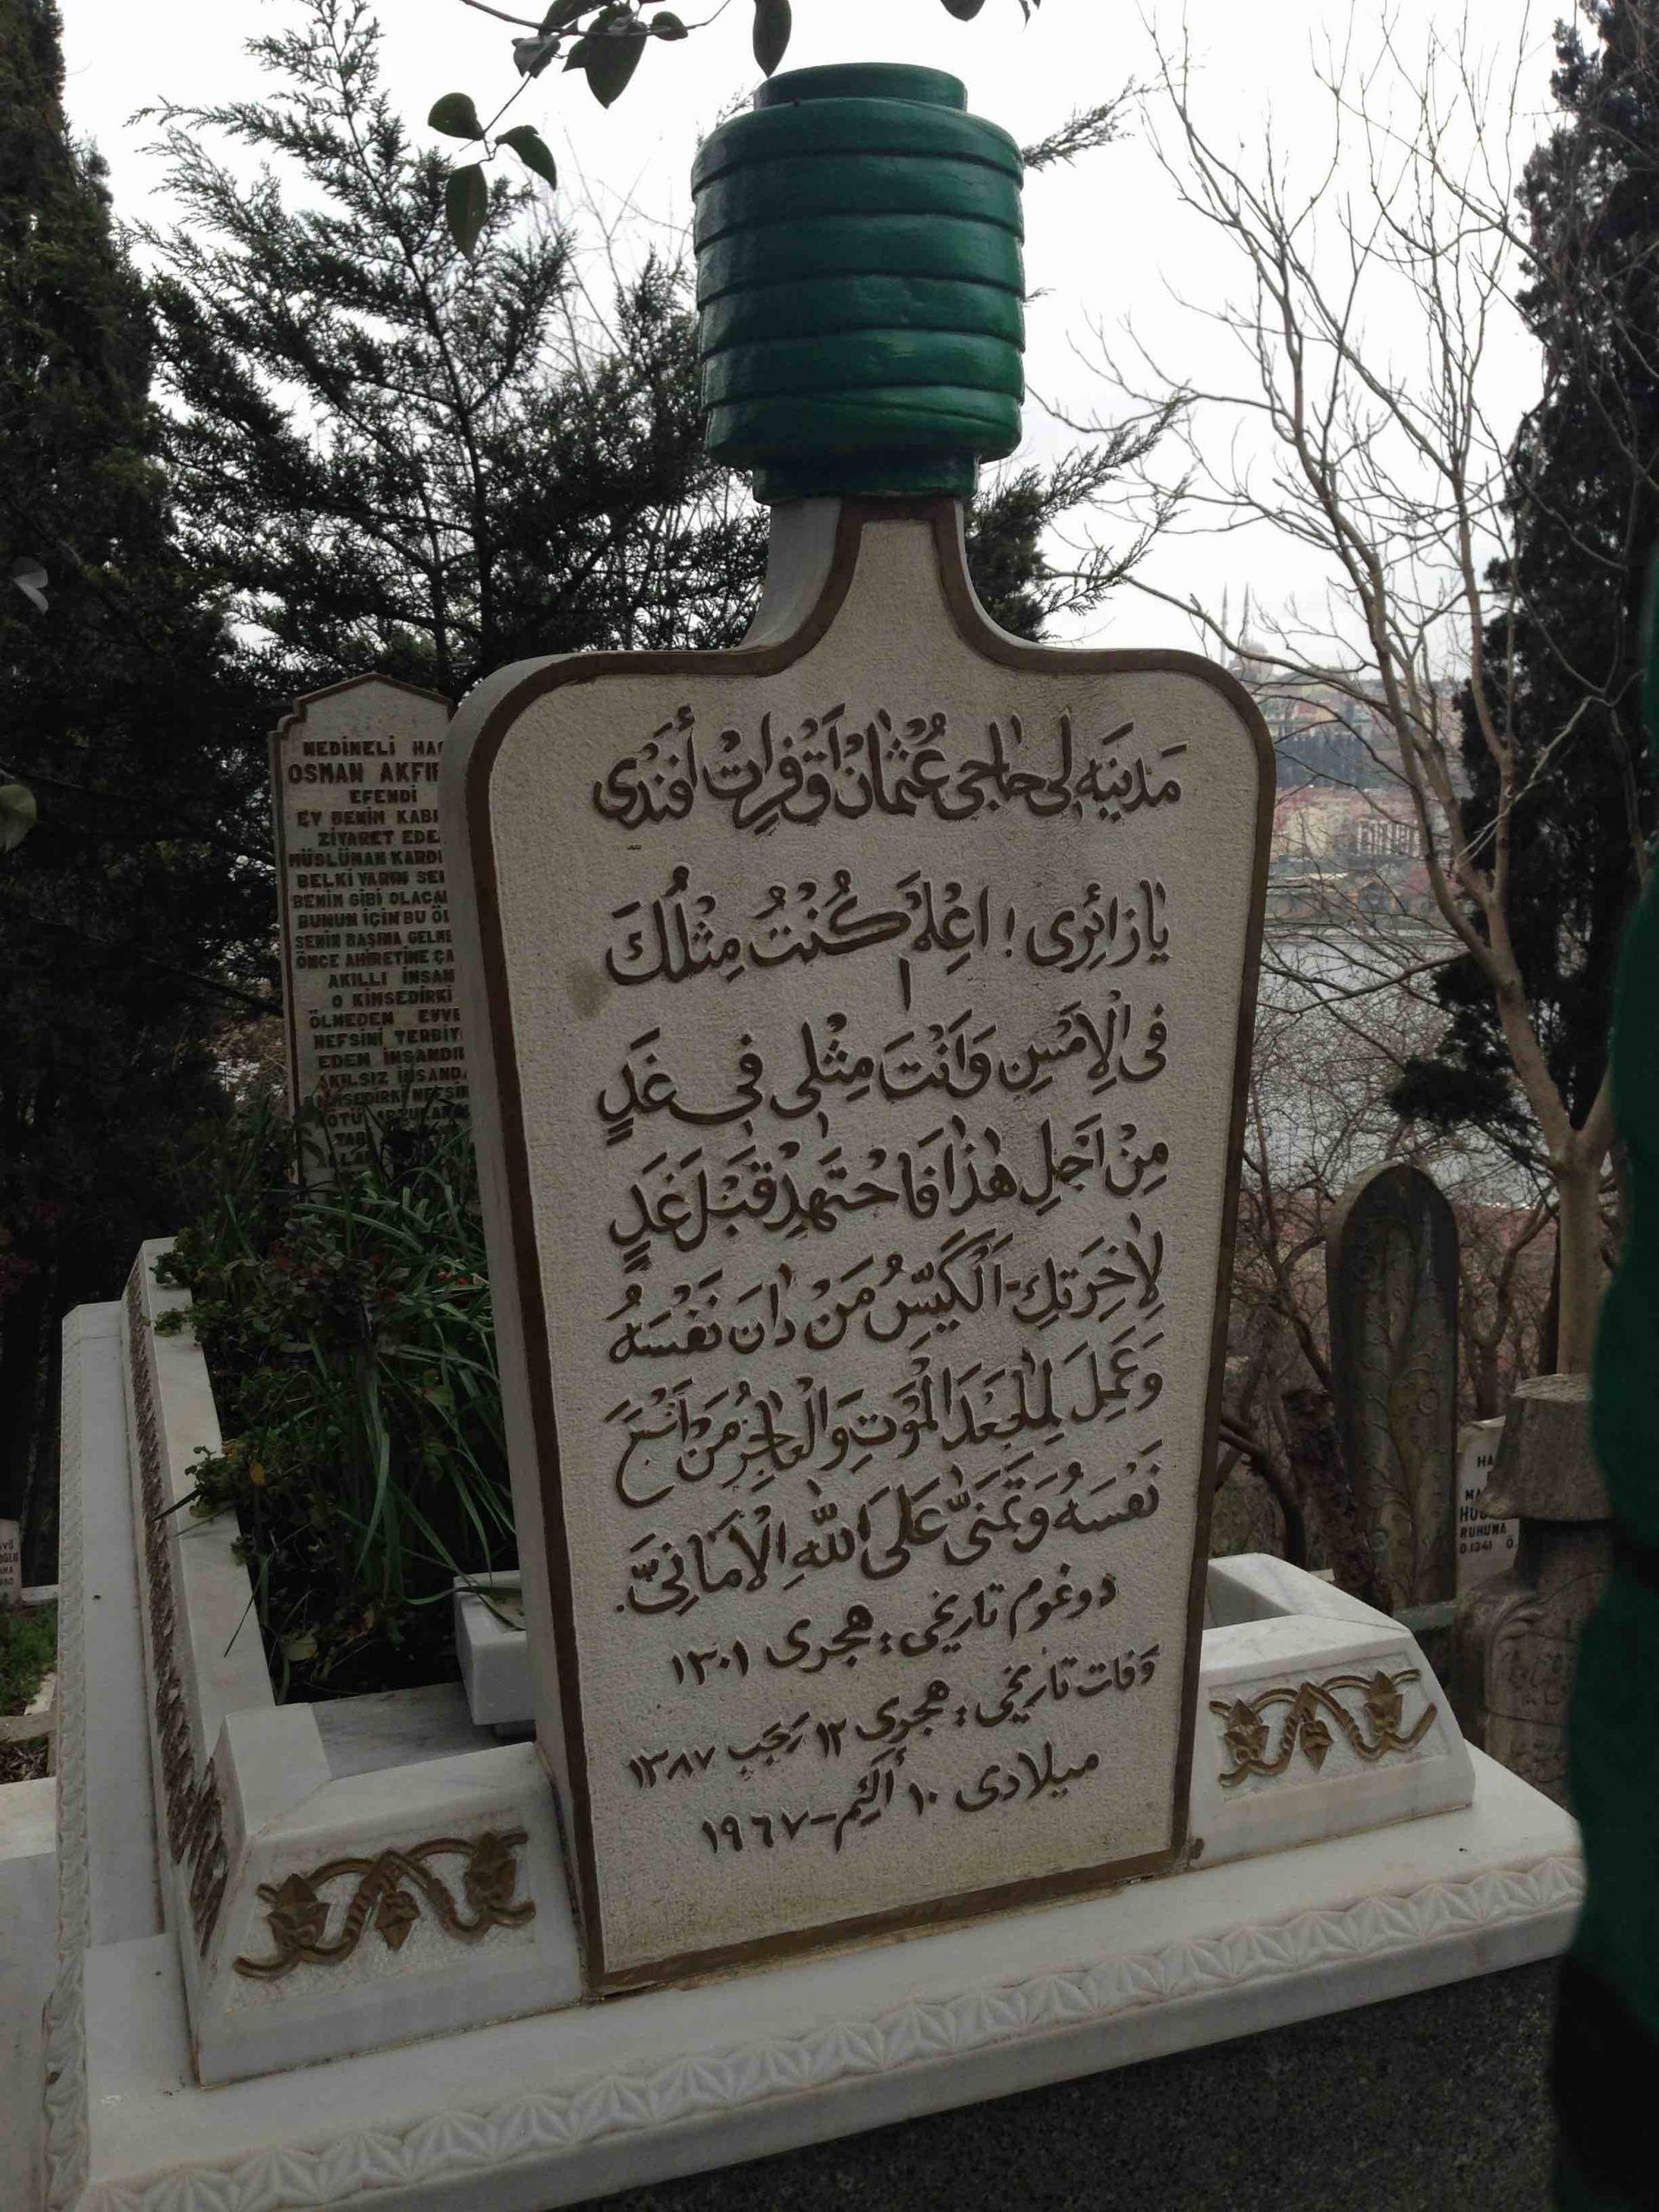 مَدينَه لى حاجى عُثْمانْ آقْفِراتْ أَفَنْدى
يا زائِرى ! اعْلَمْ كُنْتُ مِثْلُكَ
فى الْاِمْسِ وَاَنْتَ مِثْلى فى غَدٍ
مِنْ اَجْلِ هٰذا فَاحْتَهِدْ قَبْلَ غَدٍ
لِاٰخِرَتِكِ - اَلْكَيِّسُ مَنْ دانَ نَفْسَهُ
وَعَمِلَ لِمابَعْدَ الْمَوْتِ وَالْعاجِزُ مَنْ اَتْبَعَ
نَفْسَهُ وَتَمَنَّى عَلَى اللّٰهِ الْاَمَانِىَّ .
دوغوم تاريخى : هجرى ١٣٠١
وَفات تاريخى : هجرى ١٢ رَجَبِ ١٣٨٧
ميلادى ١٠ أكيم - ١٩٦٧
MEDİNELİ
OSMAN
EFENDİ
EY BENİM
ZİYARET
MÜSLÜMAN
BELKİ YARIN
BENİM GİBİ
BUNUN İÇİN BU
SENİN BAŞINA
ÖNCE AHİRETİNE
AKILLI İNSAN
O KİMSEDİRKİ
ÖLMEDEN
NEFSİNİ
EDEN
AKILSIZ
RUHUNA
D.1341